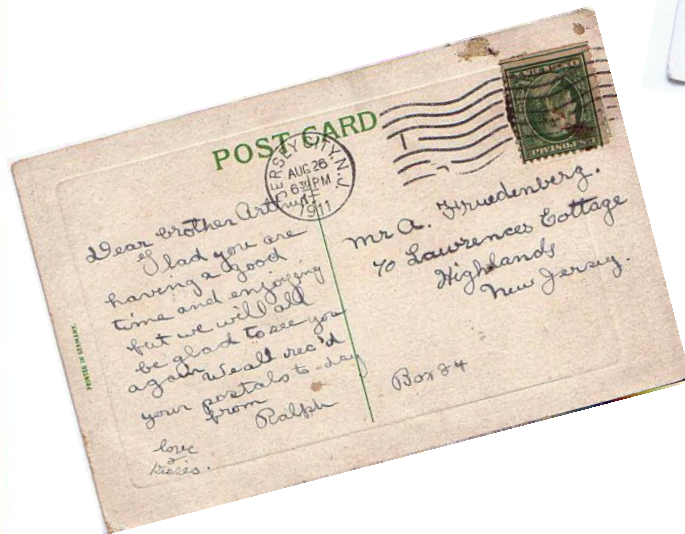 POST CARD
JERSEY CITY, N.J.
AUG 26
6 30 PM
1911
Dear brother Arthur:
Glad you are
having a good
time and enjoying
but we will all
be glad to see you
again. We all rec'd
your postals to-day
from
Ralph
love
&
kisses.
Mr A. Fruedenberg.
℅ Lawrences Cottage
Highlands
New Jersey.
Box 24
PRINTED IN GERMANY.